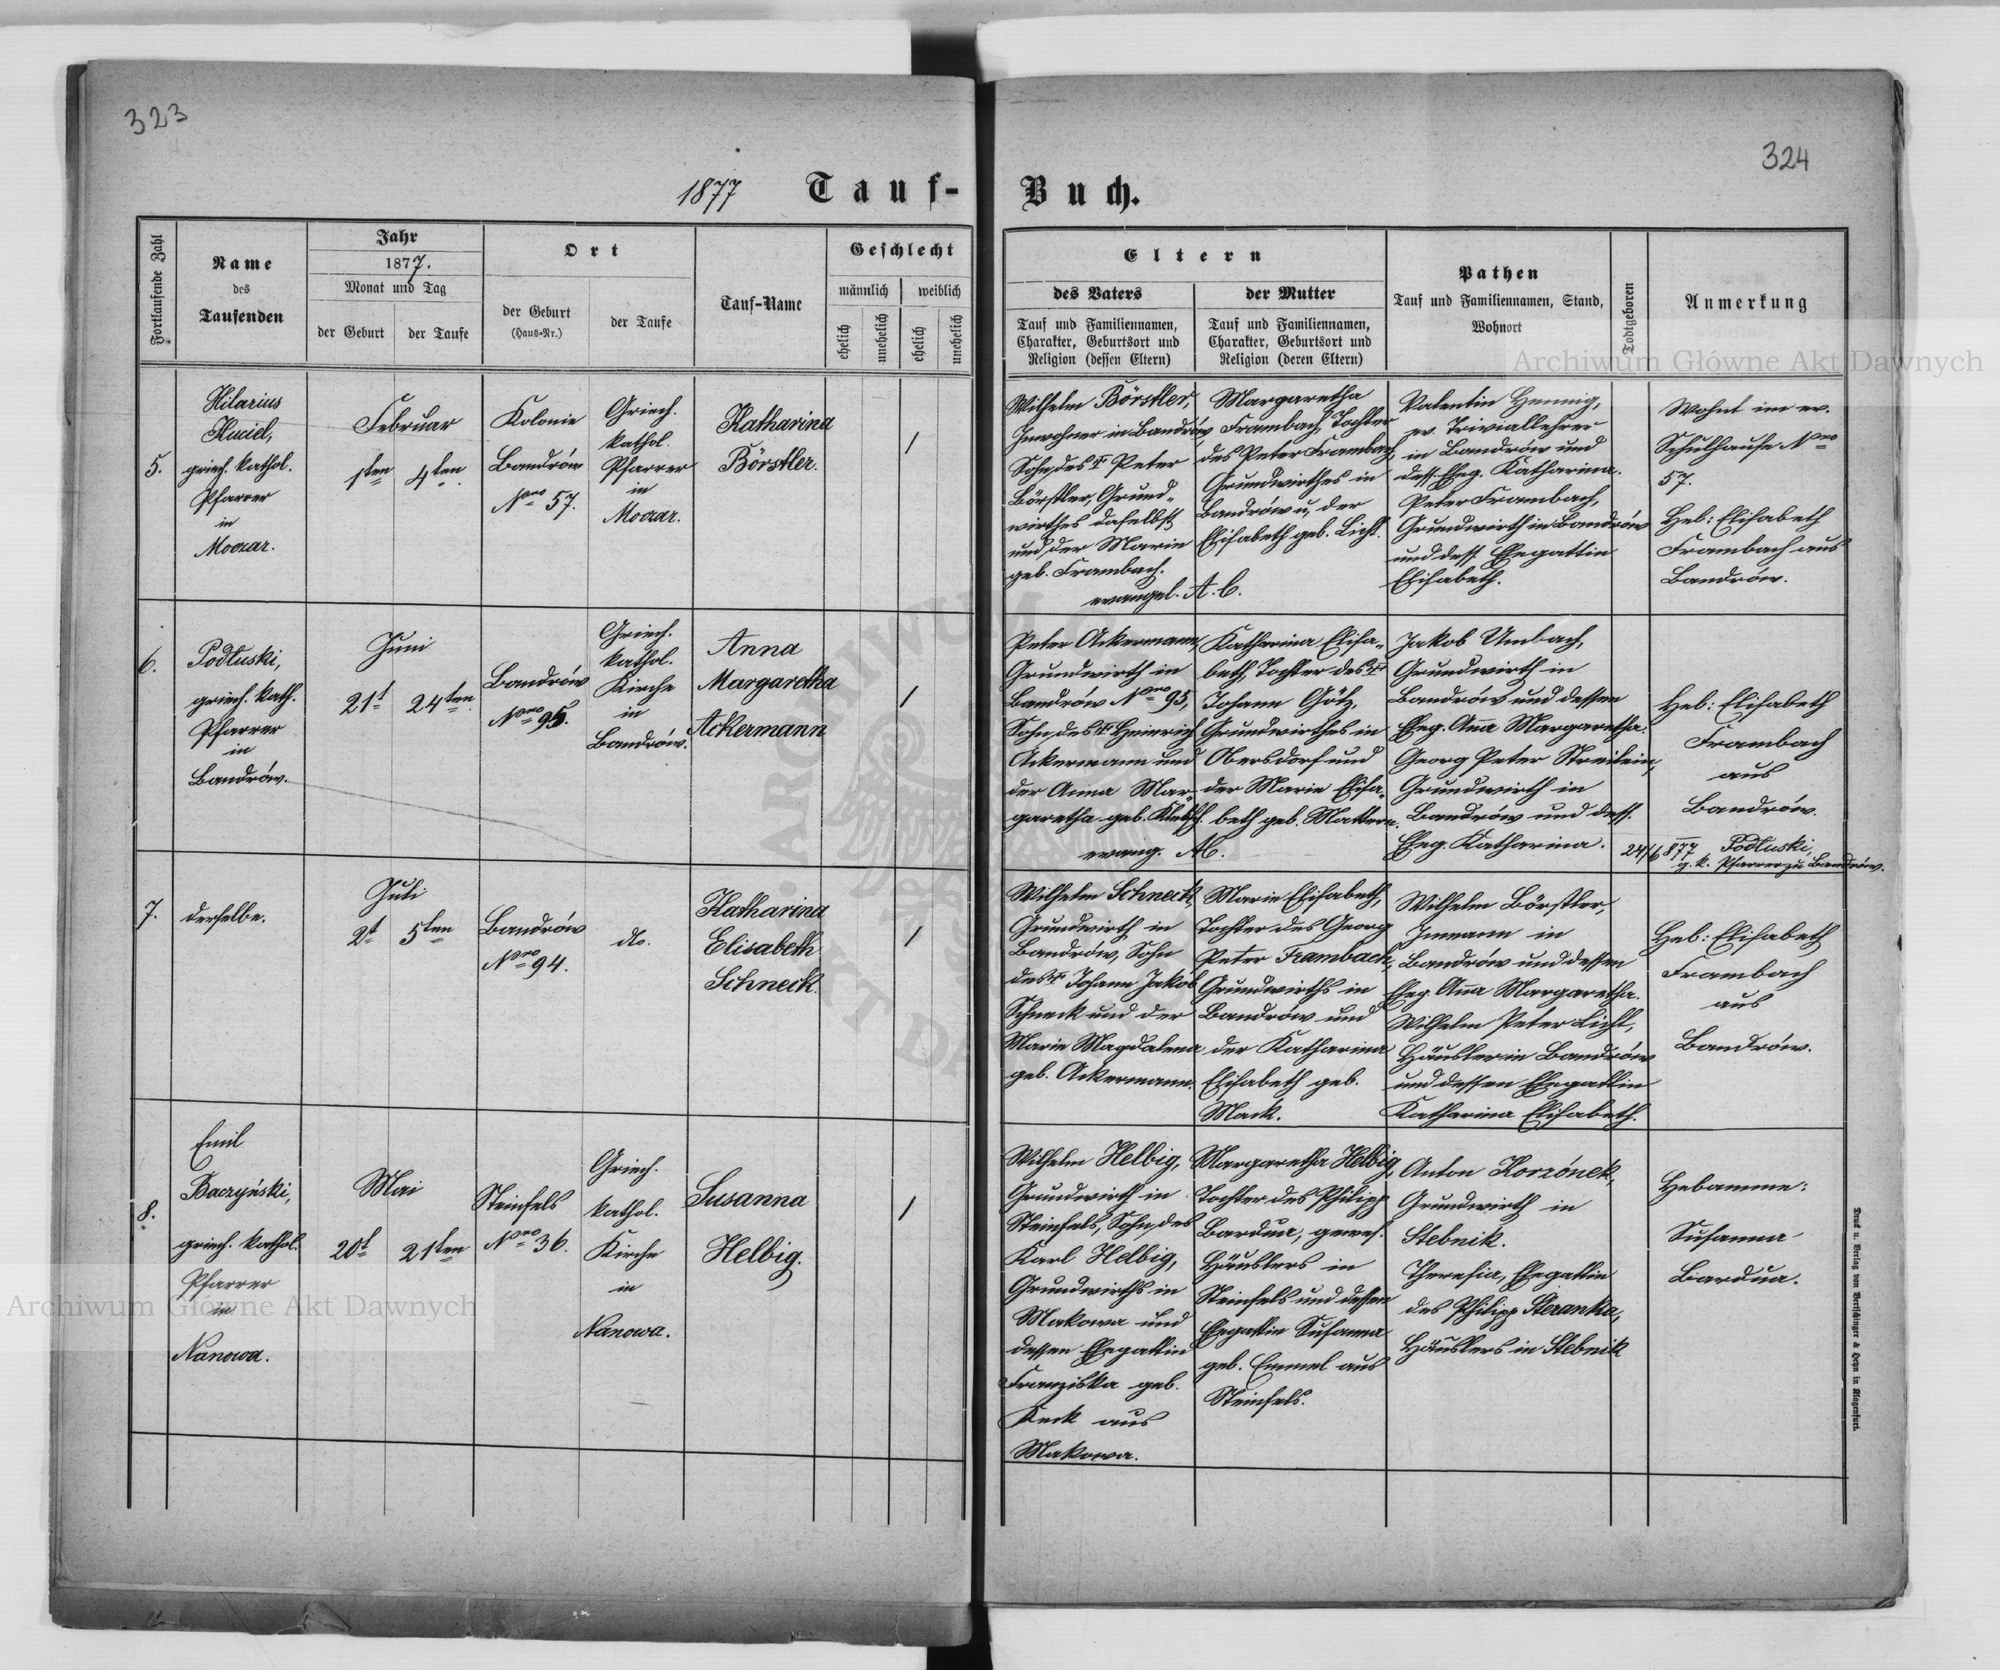 323
324
1877 Tauf-
Buch.
Fortlaufende Zahl
Name
des
Taufenden
Jahr
1877.
Monat und Tag
der Geburt
der Taufe
Ort
der Geburt
(Haus-Nr.)
der Taufe
Tauf-Name
Geschlecht
männlich
weiblich
ehelich
unehelich
ehelich
unehelich
Eltern
des Vaters
Tauf und Familiennamen,
Charakter, Geburtsort und
Religion (dessen Eltern)
der Mutter
Tauf und Familiennamen,
Charakter, Geburtsort und
Religion (deren Eltern)
Pathen
Tauf und Familiennamen, Stand,
Wohnort
Todtgeboren
Anmerkung
5.
Hilarius
Kuciel,
griech. kathol.
Pfarrer
in
Moczar.
Februar
1ten
4ten.
Kolonie
Bandrów
Nro 57.
Griech.
kathol.
Pfarrer
in
Moczar.
Katharina
Börstler.
/
Wilhelm Börstler,
Inwohner in Bandrów
Sohn des Peter
Börstler, Grund-
wirthes daselbst
und der Marie
geb. Frambach.
evangel. A. C.
Margaretha
Frambach, Tochter
des Peter Frambach,
Grundwirthes in
Bandrów u, der
Elisabeth geb. Licht.
Valentin Hennig,
ev. Triviallehrer
in Bandrów und
dess. Eheg. Katharina.
Peter Frambach,
Grundwirth in Bandrów
und dess. Ehegattin
Elisabeth.
Wohnt im ev.
Schulhause Nro
57.
Heb: Elisabeth
Frambach aus
Bandrów.
6.
Podłuski,
griech. kath.
Pfarrer
in
Bandrów.
Juni
21t
24ten.
Bandrów
Nro 95.
Griech.
kathol.
Kirche
in
Bandrów.
Anna
Margaretha
Ackermann
/
Peter Ackermann,
Grundwirth in
Bandrów Nro 95,
Sohn des Heinrich
Ackermann und
der Anna Mar-
garetha geb.
evang. AC.
Katharina Elisa-
beth, Tochter des
Johann Götz,
Grundwirthes in
Obersdorf und
der Marie Elisa-
beth geb. Mattern.
Jakob Umbach,
Grundwirth in
Bandrów und dessen
Eheg. Anna Margaretha.
Georg Peter Streilein,
Grundwirth in
Bandrów und dess.
Eheg. Katharina.
Heb: Elisabeth
Frambach
aus
Bandrów.
24/6 877 Podłuski,
g. k. Pfarrer zu Bandrów.
7.
derselbe.
Juli
2t
5ten
Bandrów
Nro 94.
dto.
Katharina
Elisabeth
Schneck.
/
Wilhelm Schneck,
Grundwirth in
Bandrów, Sohn
des Johann Jakob
Schneck und der
Marie Magdalena
geb. Ackermann.
Marie Elisabeth,
Tochter des Georg
Peter Frambach,
Grundwirths in
Bandrów und
der Katharina
Elisabeth geb.
Mack.
Wilhelm Börstler,
Inmann in
Bandrów und dessen
Eheg. Anna Margaretha.
Wilhelm Peter Licht,
Häusler in Bandrów
und dessen Ehegattin
Katharina Elisabeth.
Heb: Elisabeth
Frambach
aus
Bandrów.
8.
Emil
Baczyński,
griech. kathol.
Pfarrer
in
Nanowa.
Mai
20t
21ten
Steinfels
Nro 36.
Griech.
kathol.
Kirche
in
Nanowa.
Susanna
Helbig.
/
Wilhelm Helbig,
Grundwirth in
Steinfels, Sohn des
Karl Helbig,
Grundwirths in
Makowa und
dessen Ehegattin
Franziska geb.
Keck aus
Makowa.
Margaretha Helbig,
Tochter des Philipp
Bardua, gewes.
Häuslers in
Steinfels und dessen
Ehegattin Susanna
geb. Emmel aus
Steinfels.
Anton Korzónek,
Grundwirth in
Stebnik.
Theresia, Ehegattin
des Philipp Steranka,
Häuslers in Stebnik
Hebamme:
Susanna
Bardua.
Druck u. Verlag von Bertschinger & Heyn in Klagenfurt.
Archiwum Główne Akt Dawnych
Archiwum Główne Akt Dawnych